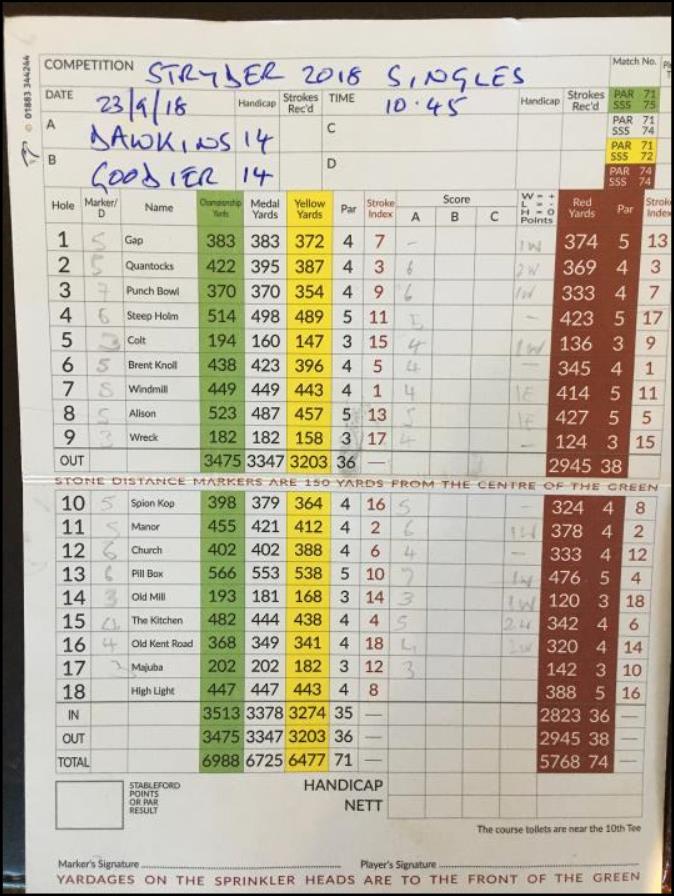 © 01883 344244
COMPETITION STRYDER 2018 SINGLES Match No.
DATE 23/9/18 Handicap Strokes Rec'd TIME 10.45 Handicap Strokes Rec'd PAR 71 SSS 75
A DAWKINS 14 C PAR 71 SSS 74
PAR 71 SSS 72
B GOODIER 14 D PAR 74 SSS 74
Hole Marker/D Name Championship Yards Medal Yards Yellow Yards Par Stroke Index Score A B C W = + L = - H = O Points Red Yards Par Stroke Index
1 5 Gap 383 383 372 4 7 - 1W 374 5 13
2 5 Quantocks 422 395 387 4 3 6 2W 369 4 3
3 7 Punch Bowl 370 370 354 4 9 6 1W 333 4 7
4 6 Steep Holm 514 498 489 5 11 - 423 5 17
5 3 Colt 194 160 147 3 15 4 1W 136 3 9
6 5 Brent Knoll 438 423 396 4 5 4 - 345 4 1
7 5 Windmill 449 449 443 4 1 4 414 5 11
8 5 Alison 523 487 457 5 13 5 427 5 5
9 3 Wreck 182 182 158 3 17 4 - 124 3 15
OUT 3475 3347 3203 36 — 2945 38
STONE DISTANCE MARKERS ARE 150 YARDS FROM THE CENTRE OF THE GREEN
10 5 Spion Kop 398 379 364 4 16 5 - 324 4 8
11 5 Manor 455 421 412 4 2 6 1W 378 4 2
12 6 Church 402 402 388 4 6 4 - 333 4 12
13 6 Pill Box 566 553 538 5 10 7 1W 476 5 4
14 3 Old Mill 193 181 168 3 14 3 1W 120 3 18
15 4 The Kitchen 482 444 438 4 4 5 2W 342 4 6
16 4 Old Kent Road 368 349 341 4 18 320 4 14
17 Majuba 202 202 182 3 12 3 142 3 10
18 High Light 447 447 443 4 8 388 5 16
IN 3513 3378 3274 35 — 2823 36 —
OUT 3475 3347 3203 36 — 2945 38 —
TOTAL 6988 6725 6477 71 — 5768 74 —
STABLEFORD POINTS OR PAR RESULT
HANDICAP
NETT
The course toilets are near the 10th Tee
Marker's Signature Player's Signature
YARDAGES ON THE SPRINKLER HEADS ARE TO THE FRONT OF THE GREEN